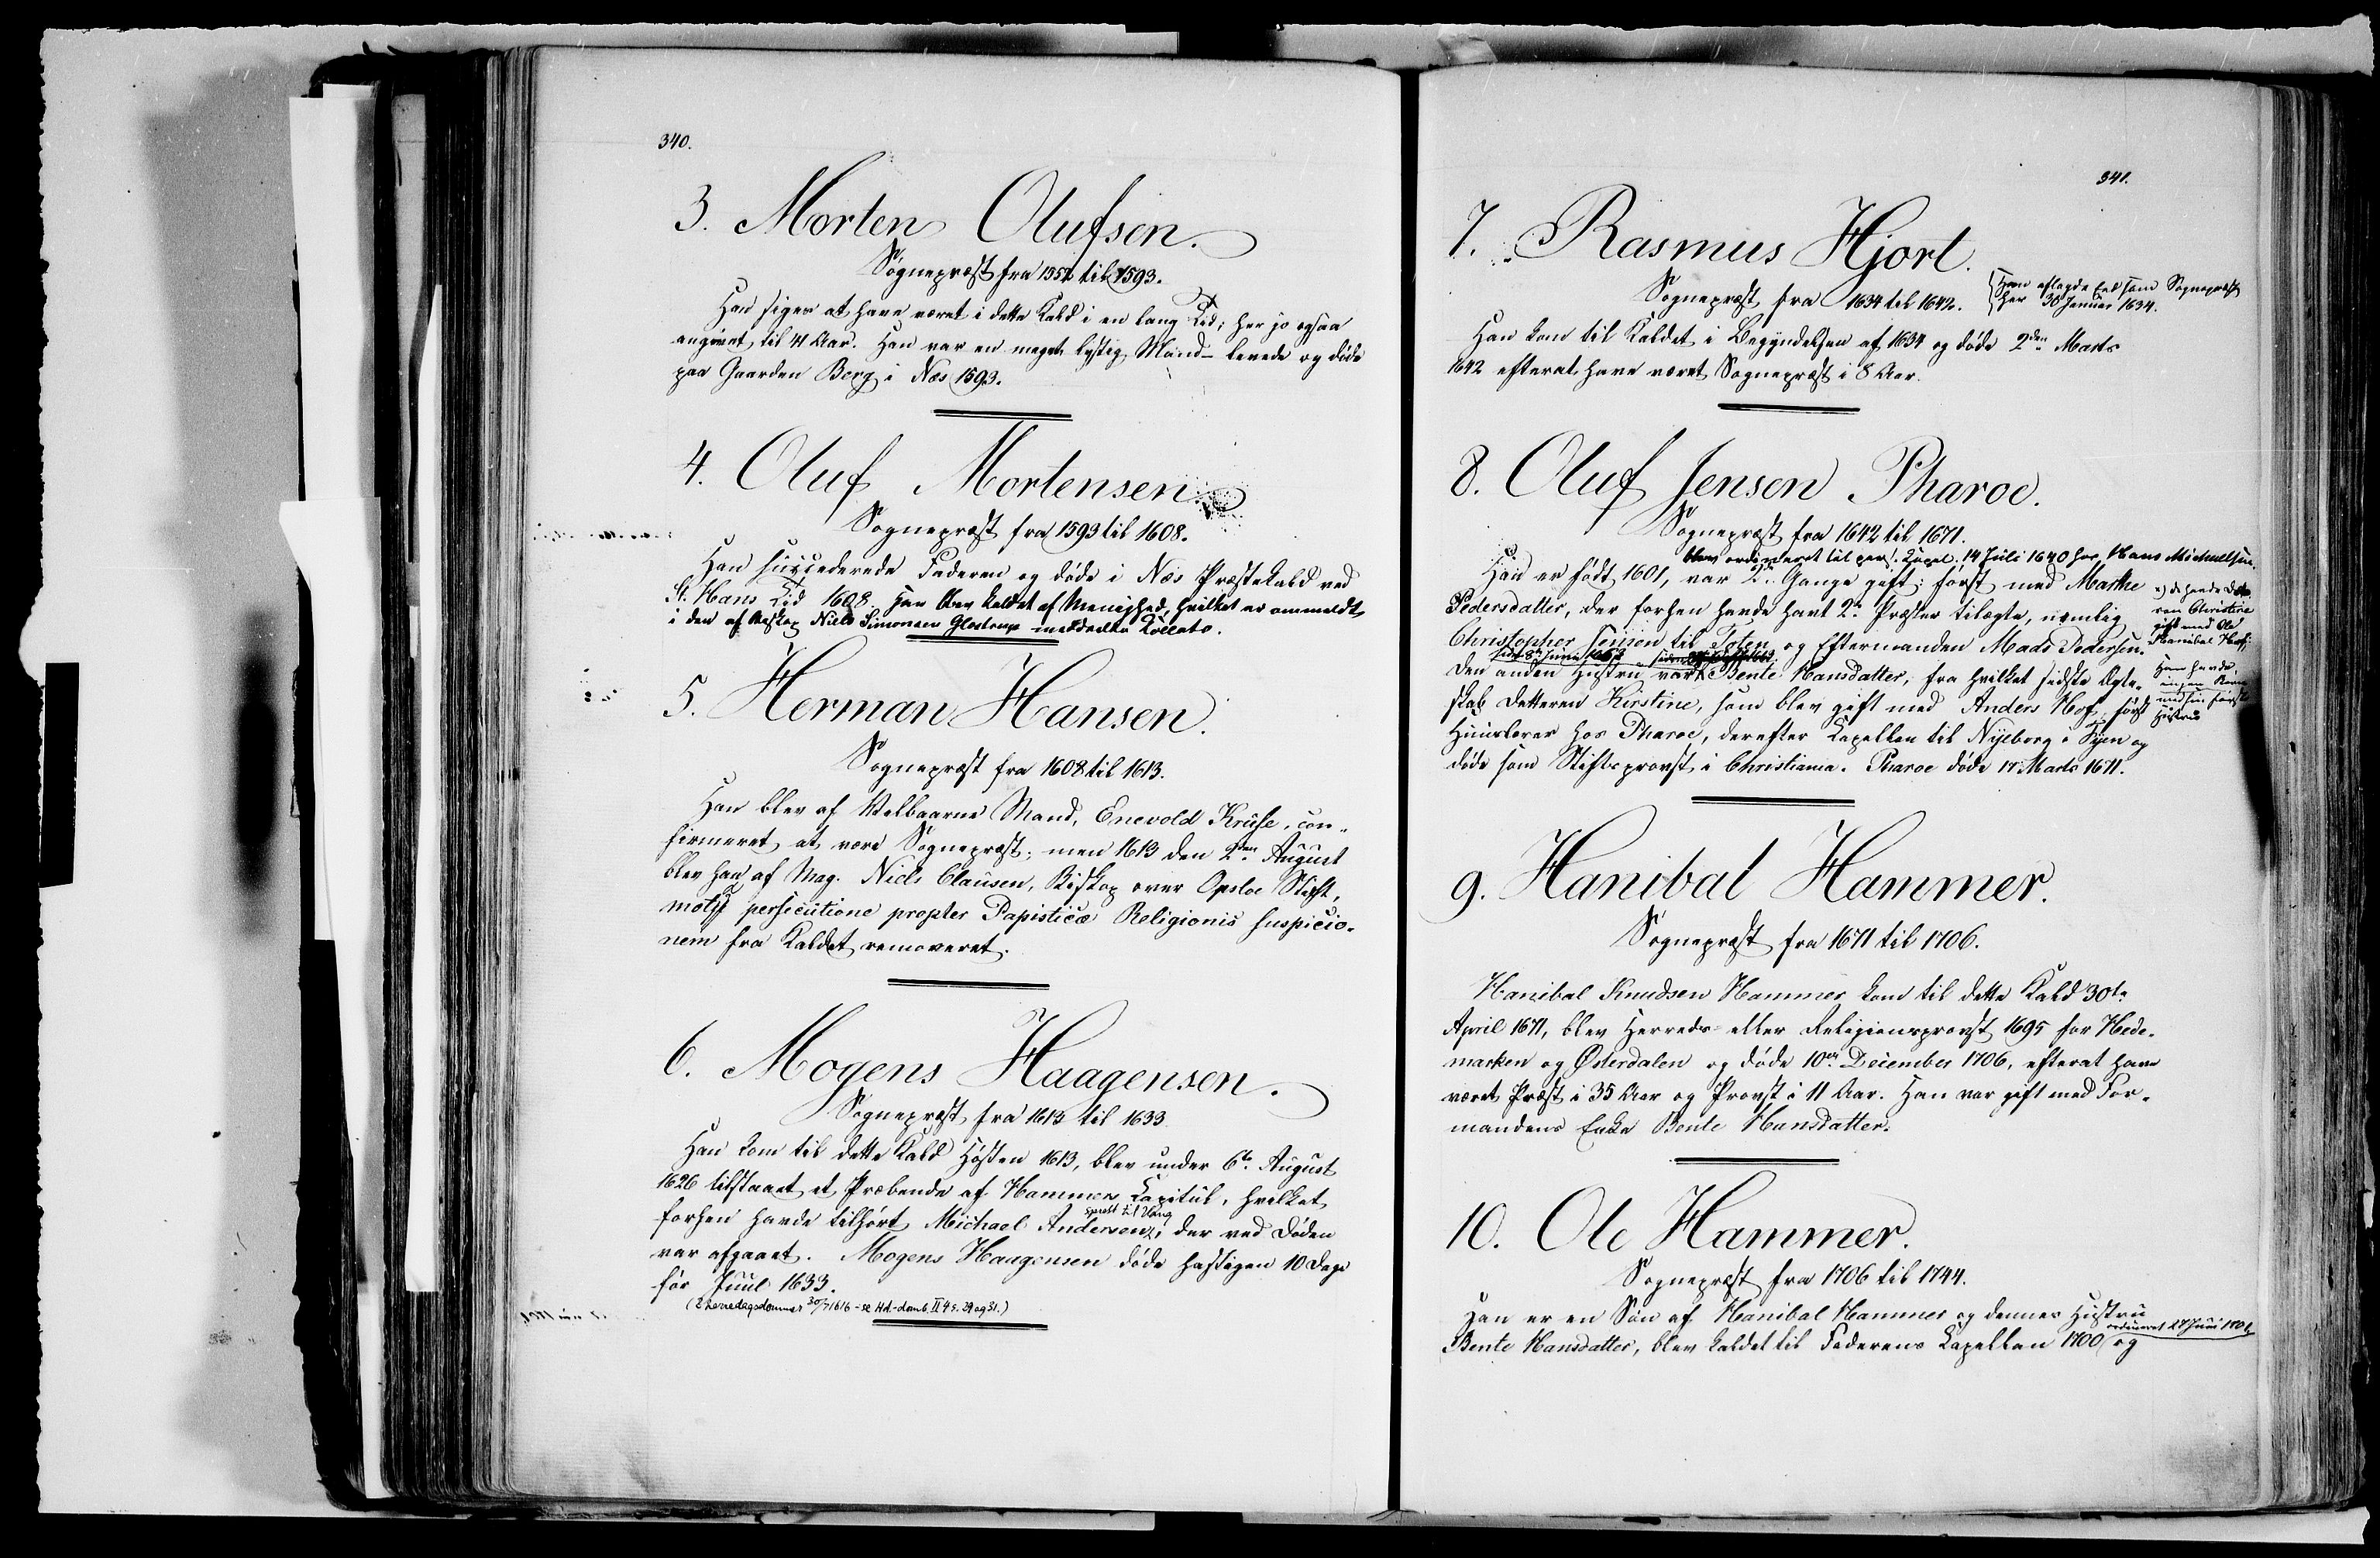 340.
3. Morten Olufsen.
Sognepræst fra 1552 til 1593.
Han siges at have været i dette Kald i en lang Tid; her jo ogsaa
angivet til 41 Aar. Han var en meget lystig Mand – levede og døde
paa Gaarden Berg i Næs 1593.
4. Oluf Mortensen.
Sognepræst fra 1593 til 1608.
Han succederede Faderen og døde i Næs Præstekald ved
St. Hans Tid 1608. Han blev kaldet af Menighed, hvilket er ommeldt
i den af Biskop Niels Simonsen Glostrup meddeelte Collats.
5. Herman Hansen.
Sognepræst fra 1608 til 1613.
Han blev af Velbaarne Mand, Enevold Kruse, con-
firmeret at være Sognepræst; men 1613 den 2den August
blev han af Mag. Niels Clausen, Biskop over Opsloe Stift,
persecutione propter Papisticæ Religionis suspicio-
nem fra Kaldet removeret.
6. Mogens Haagensen.
Sognepræst fra 1613 til 1633
Han kom til dette Kald Høsten 1613, blev under 6te August
1626 tilstaaet et Præbende af Hammers Capitul, hvilket
forhen havde tilhørt Michael Andersen, sprest til Vang der ved Døden
var afgaaet. Mogens Haagensen døde hastigen 10 Dage
før Juul 1633.
(2 herredagsdommer 30/7 1616 – se Hd.-domb. II 4 s. 29 og 31.)
341.
7. Rasmus Hjort.
Sognepræst fra 1634 til 1642.
(Han aflagde Eed som Sognepræst
her 30 Januar 1634.
Han kom til Kaldet i Begyndelsen af 1634 og døde 2den Marts
1642 efterat have været Sognepræst i 8 Aar.
8. Oluf Jensen Pharoe.
Sognepræst fra 1642 til 1671.
blev ordineret til pers. Capel. 14 Juli 1640 hos Hans Michelsen.
Han er født 1601, var 2de Gange gift: først med Marthe
Pedersdatter, der forhen havde havt 2de Præster tilægte, nemlig
Christopher Jensen til Toten og Eftermanden Mads Pedersen.
Den anden Hustru var Bente Hansdatter, fra hvilket sidste Ægte-
skab Datteren Kirstine, som blev gift med Anders Hof, først
Huuslærer hos Pharoe, derefter Capellan til Nyeborg i Fyen og
døde som Stiftsprovst i Christiania. Pharoe døde 17 Marts 1671.
x) de havde Datte-
ren Christine
gift med Ole
Hanibal
Han havde
ingen Børn
med sin første
Hustru
9. Hanibal Hammer.
Sognepræst fra 1671 til 1706.
Hanibal Knudsen Hammer kom til dette Kald 30te
April 1671, blev Herreds- eller Religionsprovst 1695 for Hede-
marken og Østerdalen og døde 10de December 1706, efterat have
været Præst i 35 Aar og Provst i 11 Aar. Han var gift med For-
mandens Enke Bente Hansdatter.
10. Ole Hammer.
Sognepræst fra 1706 til 1744.
Han er en Søn af Hanibal Hammer og dennes Hustru
ordineret 27 Juni
Bente Hansdatter, blev kaldet til Faderens Capellan 1700 og